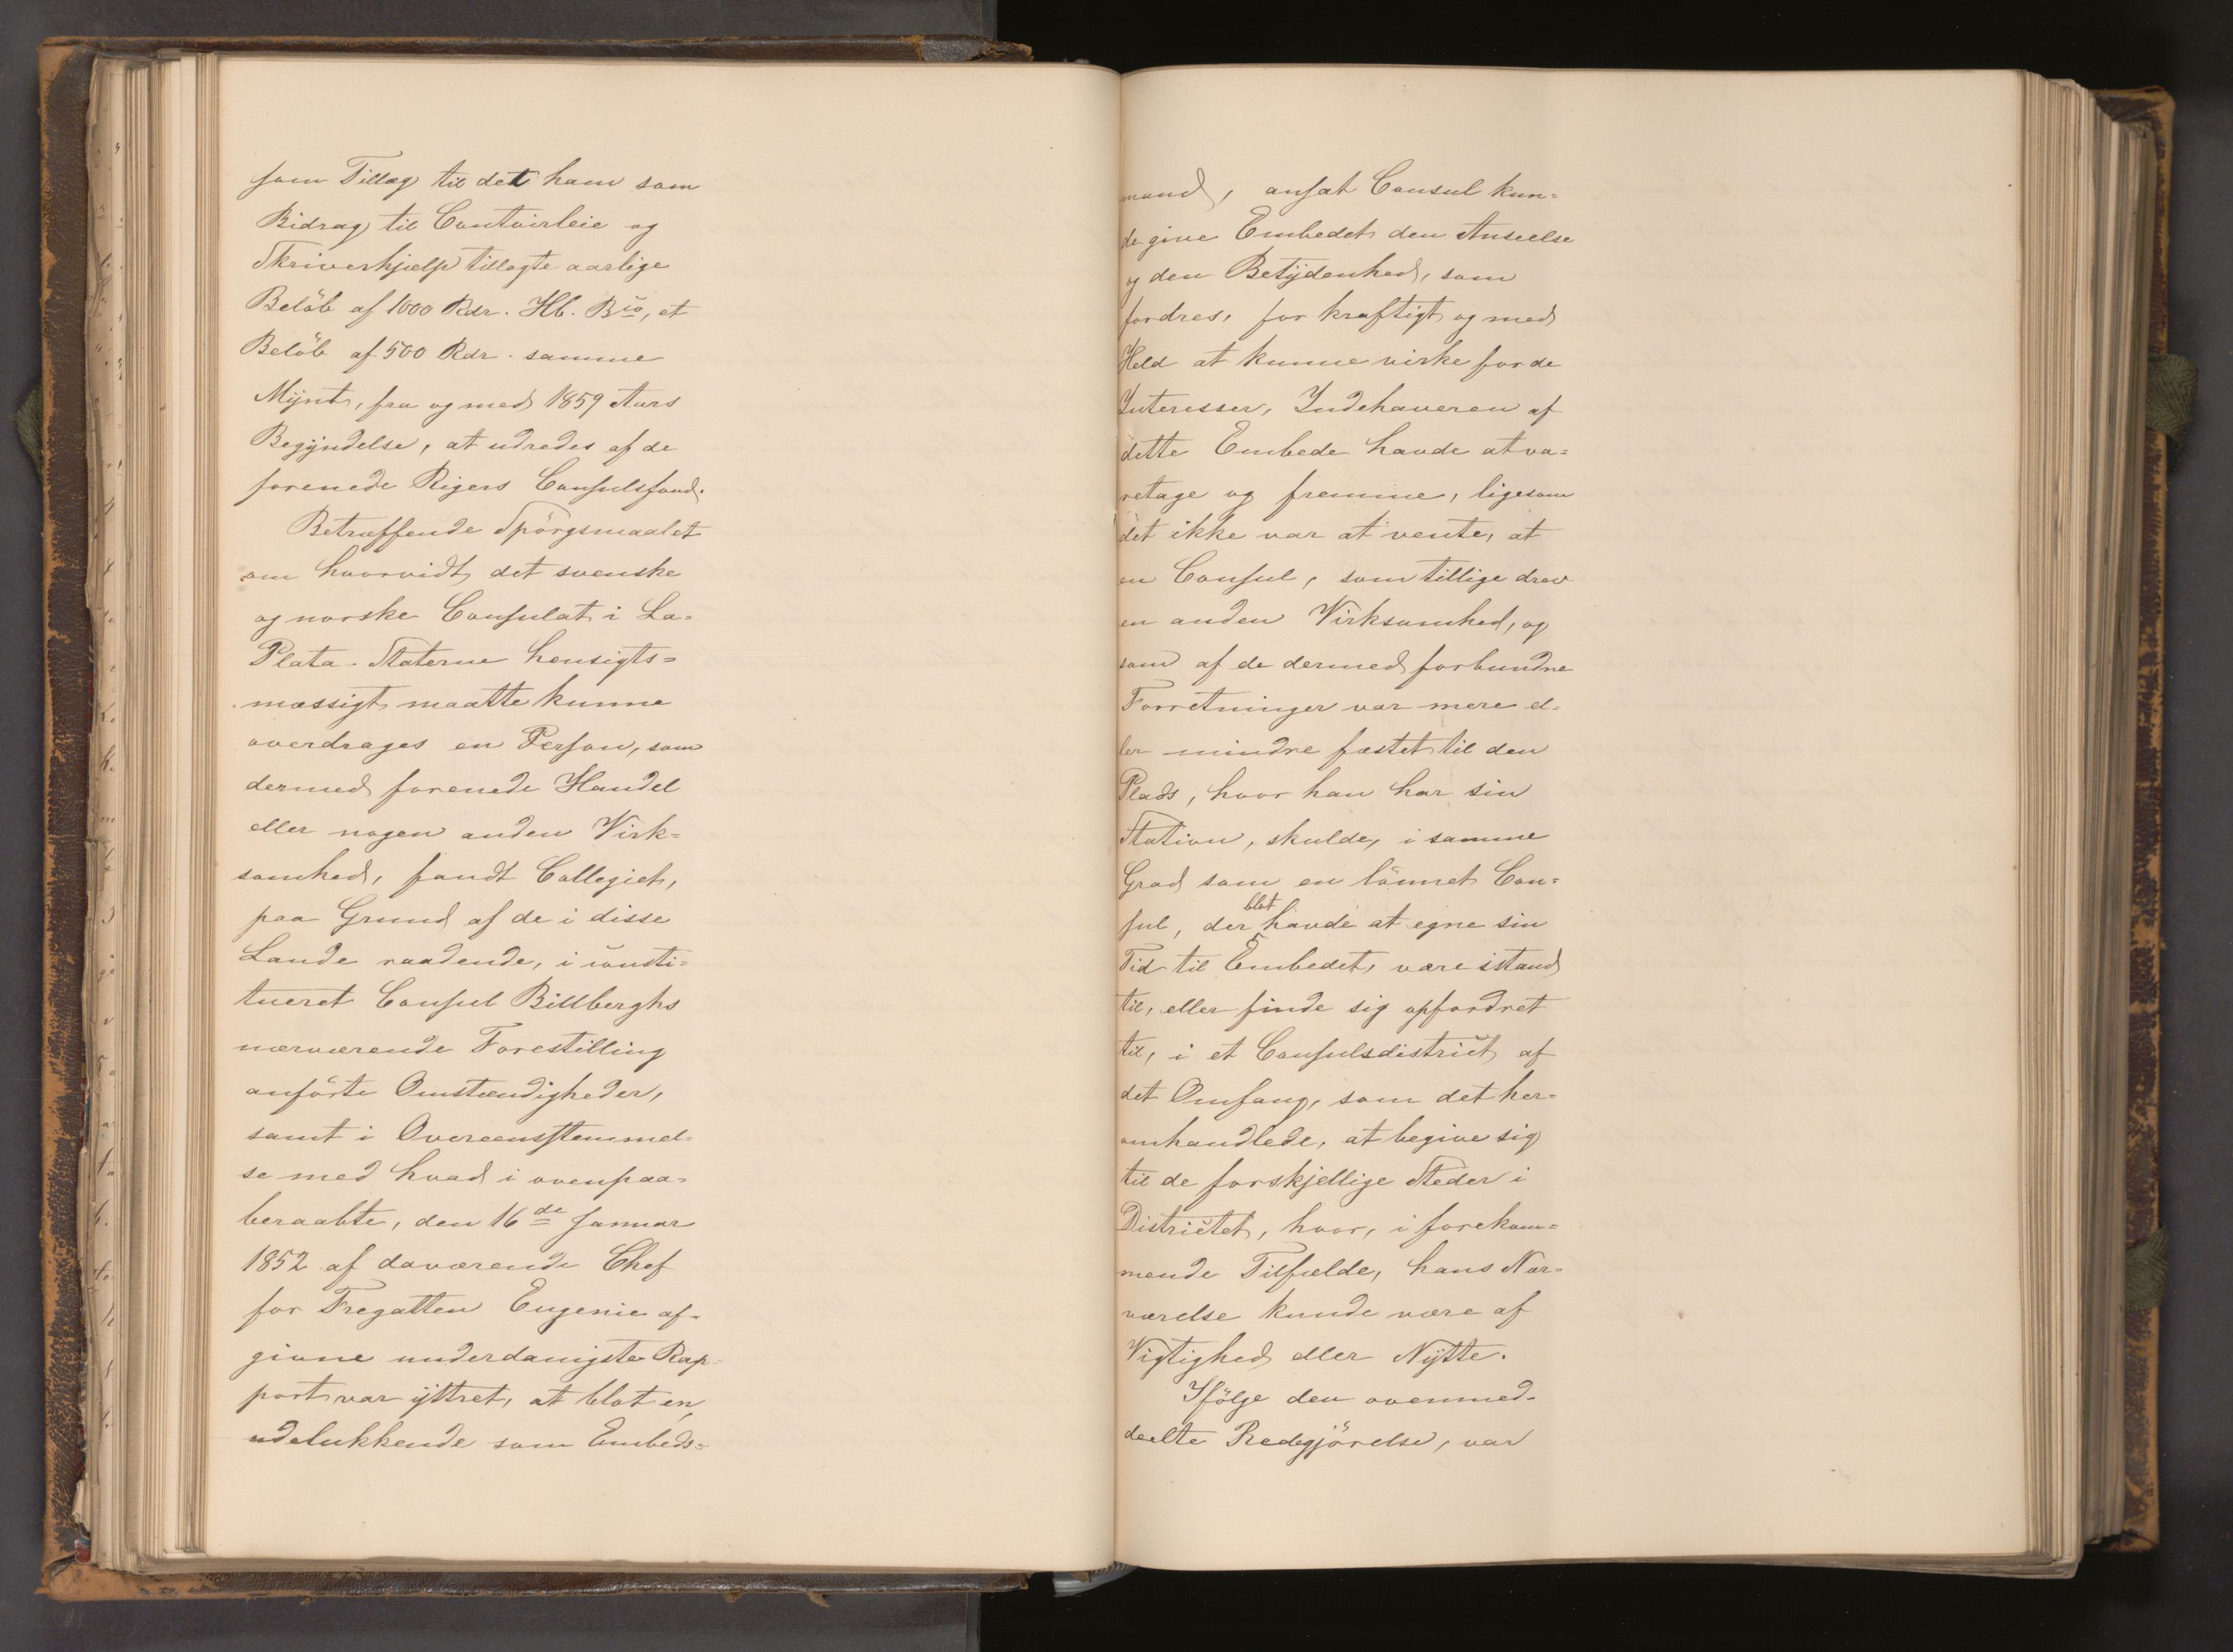 som Tillæg til det ham som
Bidrag til Contoirleie og
Skriverhjælp tillagte aarlige
Belöb af 1000 Rdr. Hb. Bco, et
Belöb af 500 Rdr. samme
Mÿnt, fra og med 1859 Aars
Begÿndelse, at udredes af de
forenede Rigers Consulsfond.
Betræffende Spörgsmaalet
om hvorvidt det svenske
og norske Consulat i La-
Plata-Staterne hensigts-
mæssigt maatte kunne
overdrages en Person, som
dermed forenede Handel
eller nogen anden Virk-
somhed, fandt Collegiet,
paa Grund af de i disse
Lande raadende, i consti-
tueret Consul Billberghs
nærværende Forestilling
anförte Omstændigheder,
samt i Overeensstemmel-
se med hvad i ovenpaa-
beraabte, den 16de Januar
1852 af daværende Chef
for Fregatten Eugenie af-
givne underdanigste Rap-
port var ÿttret, at blot en,
udelukkende som Embeds-
mand, ansat Consul kun-
de give Embedet den Anseelse
og den Betÿdenhed, som
fordres, for kraftigt og med
Held at kunne virke for de
Interesser, Indehaveren af
dette Embede havde at va-
retage og fremme, ligesom
det ikke var at vente, at
en Consul, som tillige drev
en anden Virksomhed, og
som af de dermed forbundne
Forretninger var mere el-
ler mindre fæstet til den
Plads, hvor han har sin
Station, skulde, i samme
Grad som en lönnet Con-
sul, der blot havde at egne sin
Tid til Embedet, være istand
til, eller finde sig opfordret
til, i et Consulsdistrict af
det Omfang, som det her-
omhandlede, at begive sig
til de forskjellige Steder i
Districtet, hvor, i forekom-
mende Tilfælde, hans Nær-
værelse kunde være af
Vigtighed eller Nÿtte.
Ifölge den ovenmed-
deelte Redegjörelse, var